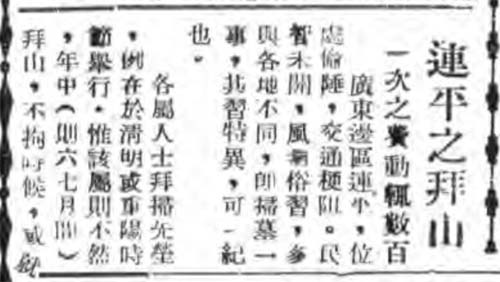 連平之拜山
一次之費動輒數百
廣東邊區連平，位
處偏陲，交通梗阻。民
智未開，風氣俗習，多
與各地不同，卽掃墓一
事，其習特異，可一紀
也。
各屬人士拜掃先塋
，例在於淸明或重陽時
節舉行。惟該屬則不然
，年中（則六七月間）
拜山，不拘時候，或